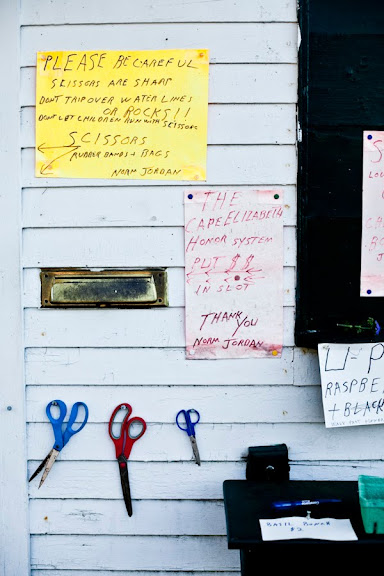 PLEASE BE CAREFUL
SCISSORS ARE SHARP
DONT TRIP OVER WATER LINES
OR ROCKS!!
DONT LET CHILDREN RUN WITH SCISSORS
SCISSORS
RUBBER BANDS + BAGS
NORM JORDAN
THE
CAPE ELIZABETH
HONOR SYSTEM
PUT $$
IN SLOT
THANK YOU
NORM JORDAN
U-P
RASPBE
+ BLACK